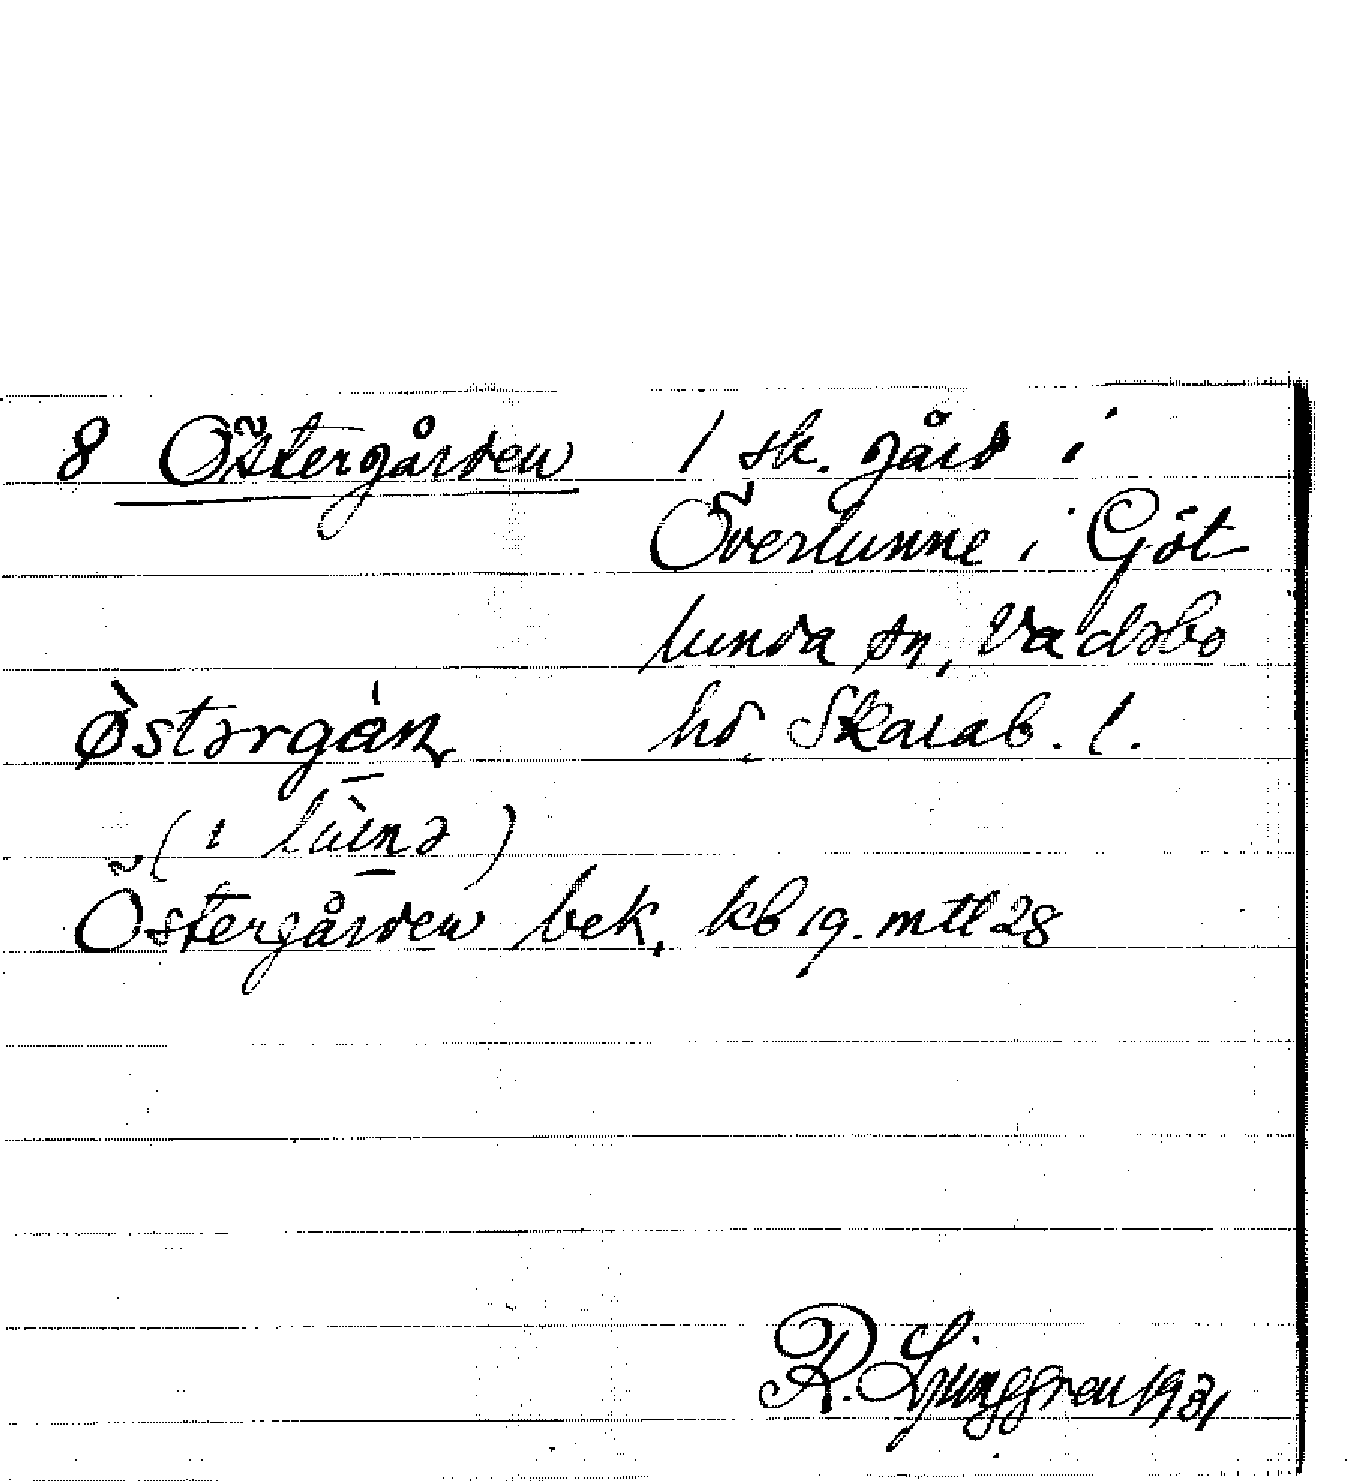 8 Östergården 1 sk. gård i
Överlunne i Göt-
lunda sn, Vadsbo
hd. Skarab. l.
østərgán
(i lu̇nə)
Östergården bek. kb 19. mtl 28
R. Ljunggren 1931